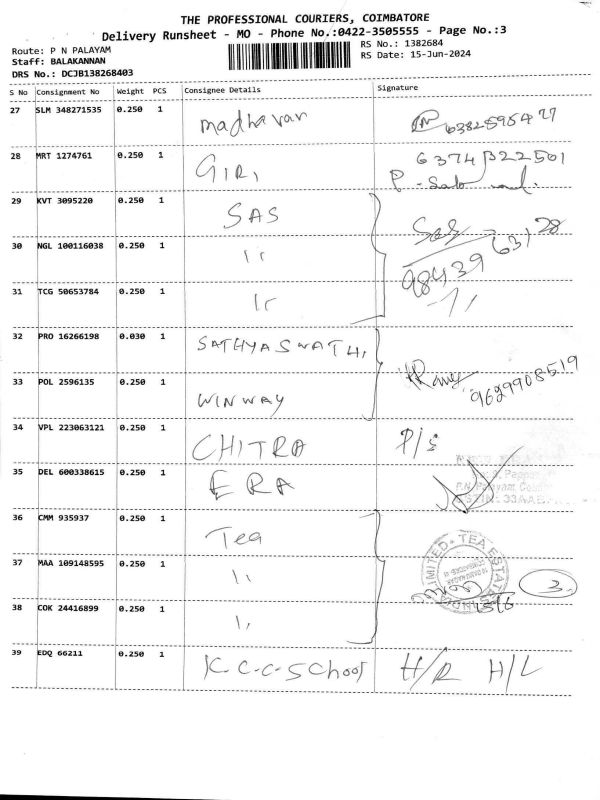 THE PROFESSIONAL COURIERS, COIMBATORE
Delivery Runsheet - MO - Phone No.:0422-3505555 - Page No.:3
Route: P N PALAYAM
RS No.: 1382684
Staff: BALAKANNAN
RS Date: 15-Jun-2024
DRS No.: DCJB138268403
S No Consignment No Weight PCS Consignee Details Signature
27 SLM 348271535 0.250 1 Madhavan
28 MRT 1274761 0.250 1 GIRI
29 KVT 3095220 0.250 1 SAS Sas
30 NGL 100116038 0.250 1 ιι 98439 63128
31 TCG 50653784 0.250 1 ιι
32 PRO 16266198 0.030 1 SATHYASWATHI
33 POL 2596135 0.250 1 WINWAY 9629908519
34 VPL 223063121 0.250 1 CHITRA P/s
35 DEL 600338615 0.250 1 ERA
36 CMM 935937 0.250 1 Tea
37 MAA 109148595 0.250 1 ιι 3.
38 COK 24416899 0.250 1 ιι 15/6
39 EDQ 66211 0.250 1 K.C.C-School H/R H/L